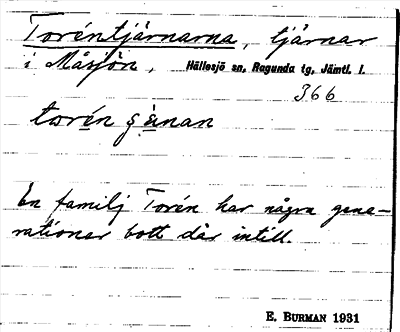 Toréntjärnarna, tjärnar
i Måsjön, Hällesjö sn, Ragunda tg, Jämtl. l.
366
torén
En familj Torén har några gene-
rationer bott där intill.
E. BURMAN 1931